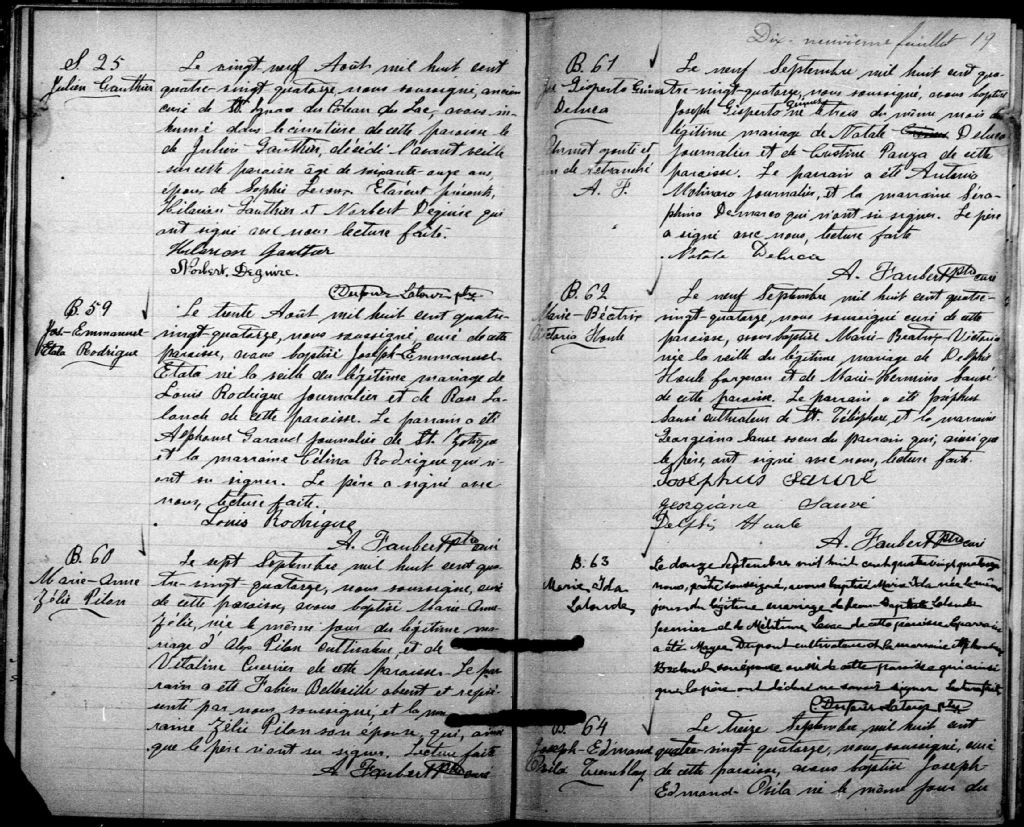 S. 25
Julien Gauthier
Le vingt neuf Août mil huit cent
quatre-vingt-quatorze, nous soussigné, ancien
curé de St. Ignace du Coteau du Lac, avons in-
humé dans le cimetière de cette paroisse le
de Julien Gauthier, décédé l'avant veille
sur cette paroisse âgé de soixante onze ans,
époux de Sophie Leroux. Etaient présents,
Hilarion Gauthier et Norbert Deguire qui
ont signé avec nous lecture faite.
Hilarion Gauthier
Norbert Deguire.
B. 59
Jos-Emmanuel
Etala Rodrigue
Le trente Août mil huit cent quatre-
vingt-quatorze, nous soussigné, curé de cette
paroisse, avons baptisé Joseph Emmanuel
Etala né la veille du légitime mariage de
Louis Rodrigue journalier et de Rose La-
londe de cette paroisse. Le parrain a été
Alphonse Garaud journalier de St. Zotique
et la marraine Célina Rodrigue qui n'-
ont su signer. Le père a signé avec
nous, lecture faite.
Louis Rodrigue
A. Faubert Ptre curé
B. 60
Marie-Anne
Zélie Pilon
Le sept Septembre mil huit cent qua-
tre-vingt-quatorze, nous soussigné, curé
de cette paroisse, avons baptisé Marie Anne
Zélie, née le même jour du légitime ma-
riage d'Alex Pilon cultivateur, et de
Vitaline Cuerrier de cette paroisse. Le par-
rain a été Fabien Bellefeuille absent et repré-
senté par nous, soussigné, et la mar-
raine Zélie Pilon son épouse, qui, ainsi
que le père n'ont su signer. Lecture faite
A. Faubert Ptre curé
Dix-neuvième feuillet 19
B. 61
Jos Gisperto Guimer
Deluca
Un mot ajouté et
un de retranché
A. F.
Le neuf Septembre mil huit cent qua-
tre-vingt-quatorze, nous soussigné, avons baptisé
Joseph Gisperto né le trois du même mois du
légitime mariage de Natale Deluca
journalier et de Cristine Panza de cette
paroisse. Le parrain a été Antonio
Molinaro journalier, et la marraine Séra-
phina Demarco qui n'ont su signer. Le père
a signé avec nous, lecture faite
Natale Deluca
A. Faubert Ptre curé
B. 62
Marie-Béatrix
Victoria Houle
Le neuf Septembre mil huit cent quatre-
vingt-quatorze, nous soussigné curé de cette
paroisse, avons baptisé Marie Béatrix Victoria
née la veille du légitime mariage de Delphis
Houle forgeron et de Marie-Hermine Sauvé
de cette paroisse. Le parrain a été Josephus
Sauvé cultivateur de St. Télésphore, et la marraine
Georgiana Sauvé soeur du parrain qui, ainsi que
le père, ont signé avec nous, lecture faite.
Josephus Sauvé
Georgiana Sauvé
Delphis Houle
A. Faubert Ptre curé
B. 63
Marie Ida
Lalonde
Le douze Septembre mil huit cent quatre vingt quatorze
nous, prêtre soussigné, avons baptisé Marie Ida née le même
jour du légitime mariage de Jean Baptiste Lalonde
journalier et de Mélitime de cette paroisse Le parrain
a été Dupont cultivateur et la marraine
son épouse aussi de cette paroisse qui ainsi
que le père ont déclaré ne savoir signer Lecture faite
B. 64
Joseph-Edmond
Osila Tremblay
Le treize Septembre mil huit cent
quatre-vingt quatorze, nous, soussigné, curé
de cette paroisse, avons baptisé Joseph-
Edmond Osila né le même jour du